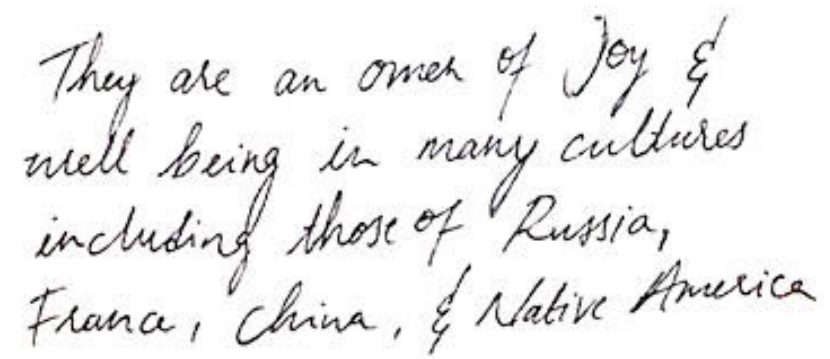 They are an omen of Joy &
well being in many cultures
including those of Russia,
France, China, & Native America